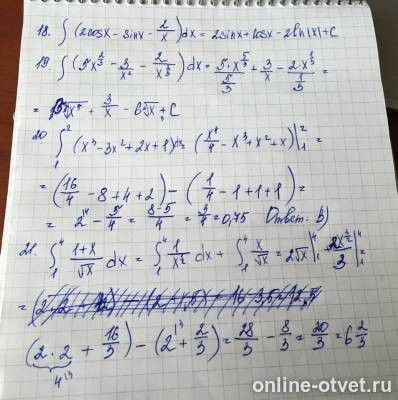 18. ∫ (2cosx - sinx - 2/x) dx = 2sinx + cosx - 2ln|x| + C
19. ∫ (5x^(2/3) - 3/x² - 2/x^(2/3)) dx = 5·x^(5/3)/(5/3) + 3/x - 2·x^(1/3)/(1/3) =
= 3∛x⁵ + 3/x - 6∛x + C
20 ∫₁² (x³ - 3x² + 2x + 1) dx (x⁴/4 - x³ + x² + x)|₁² =
= (16/4 - 8 + 4 + 2) - (1/4 - 1 + 1 + 1) =
= 2 - 5/4 = (8-5)/4 = 3/4 = 0,75 Ответ: b)
21. ∫₁⁴ (1+x)/√x dx = ∫₁⁴ 1/x^(1/2) dx + ∫₁⁴ x/√x = 2√x|₁⁴ + 2x^(3/2)/3|₁⁴ =
(2·2 + 16/3) - (2 + 2/3) = 28/3 - 8/3 = 20/3 = 6 2/3
4
online-otvet.ru